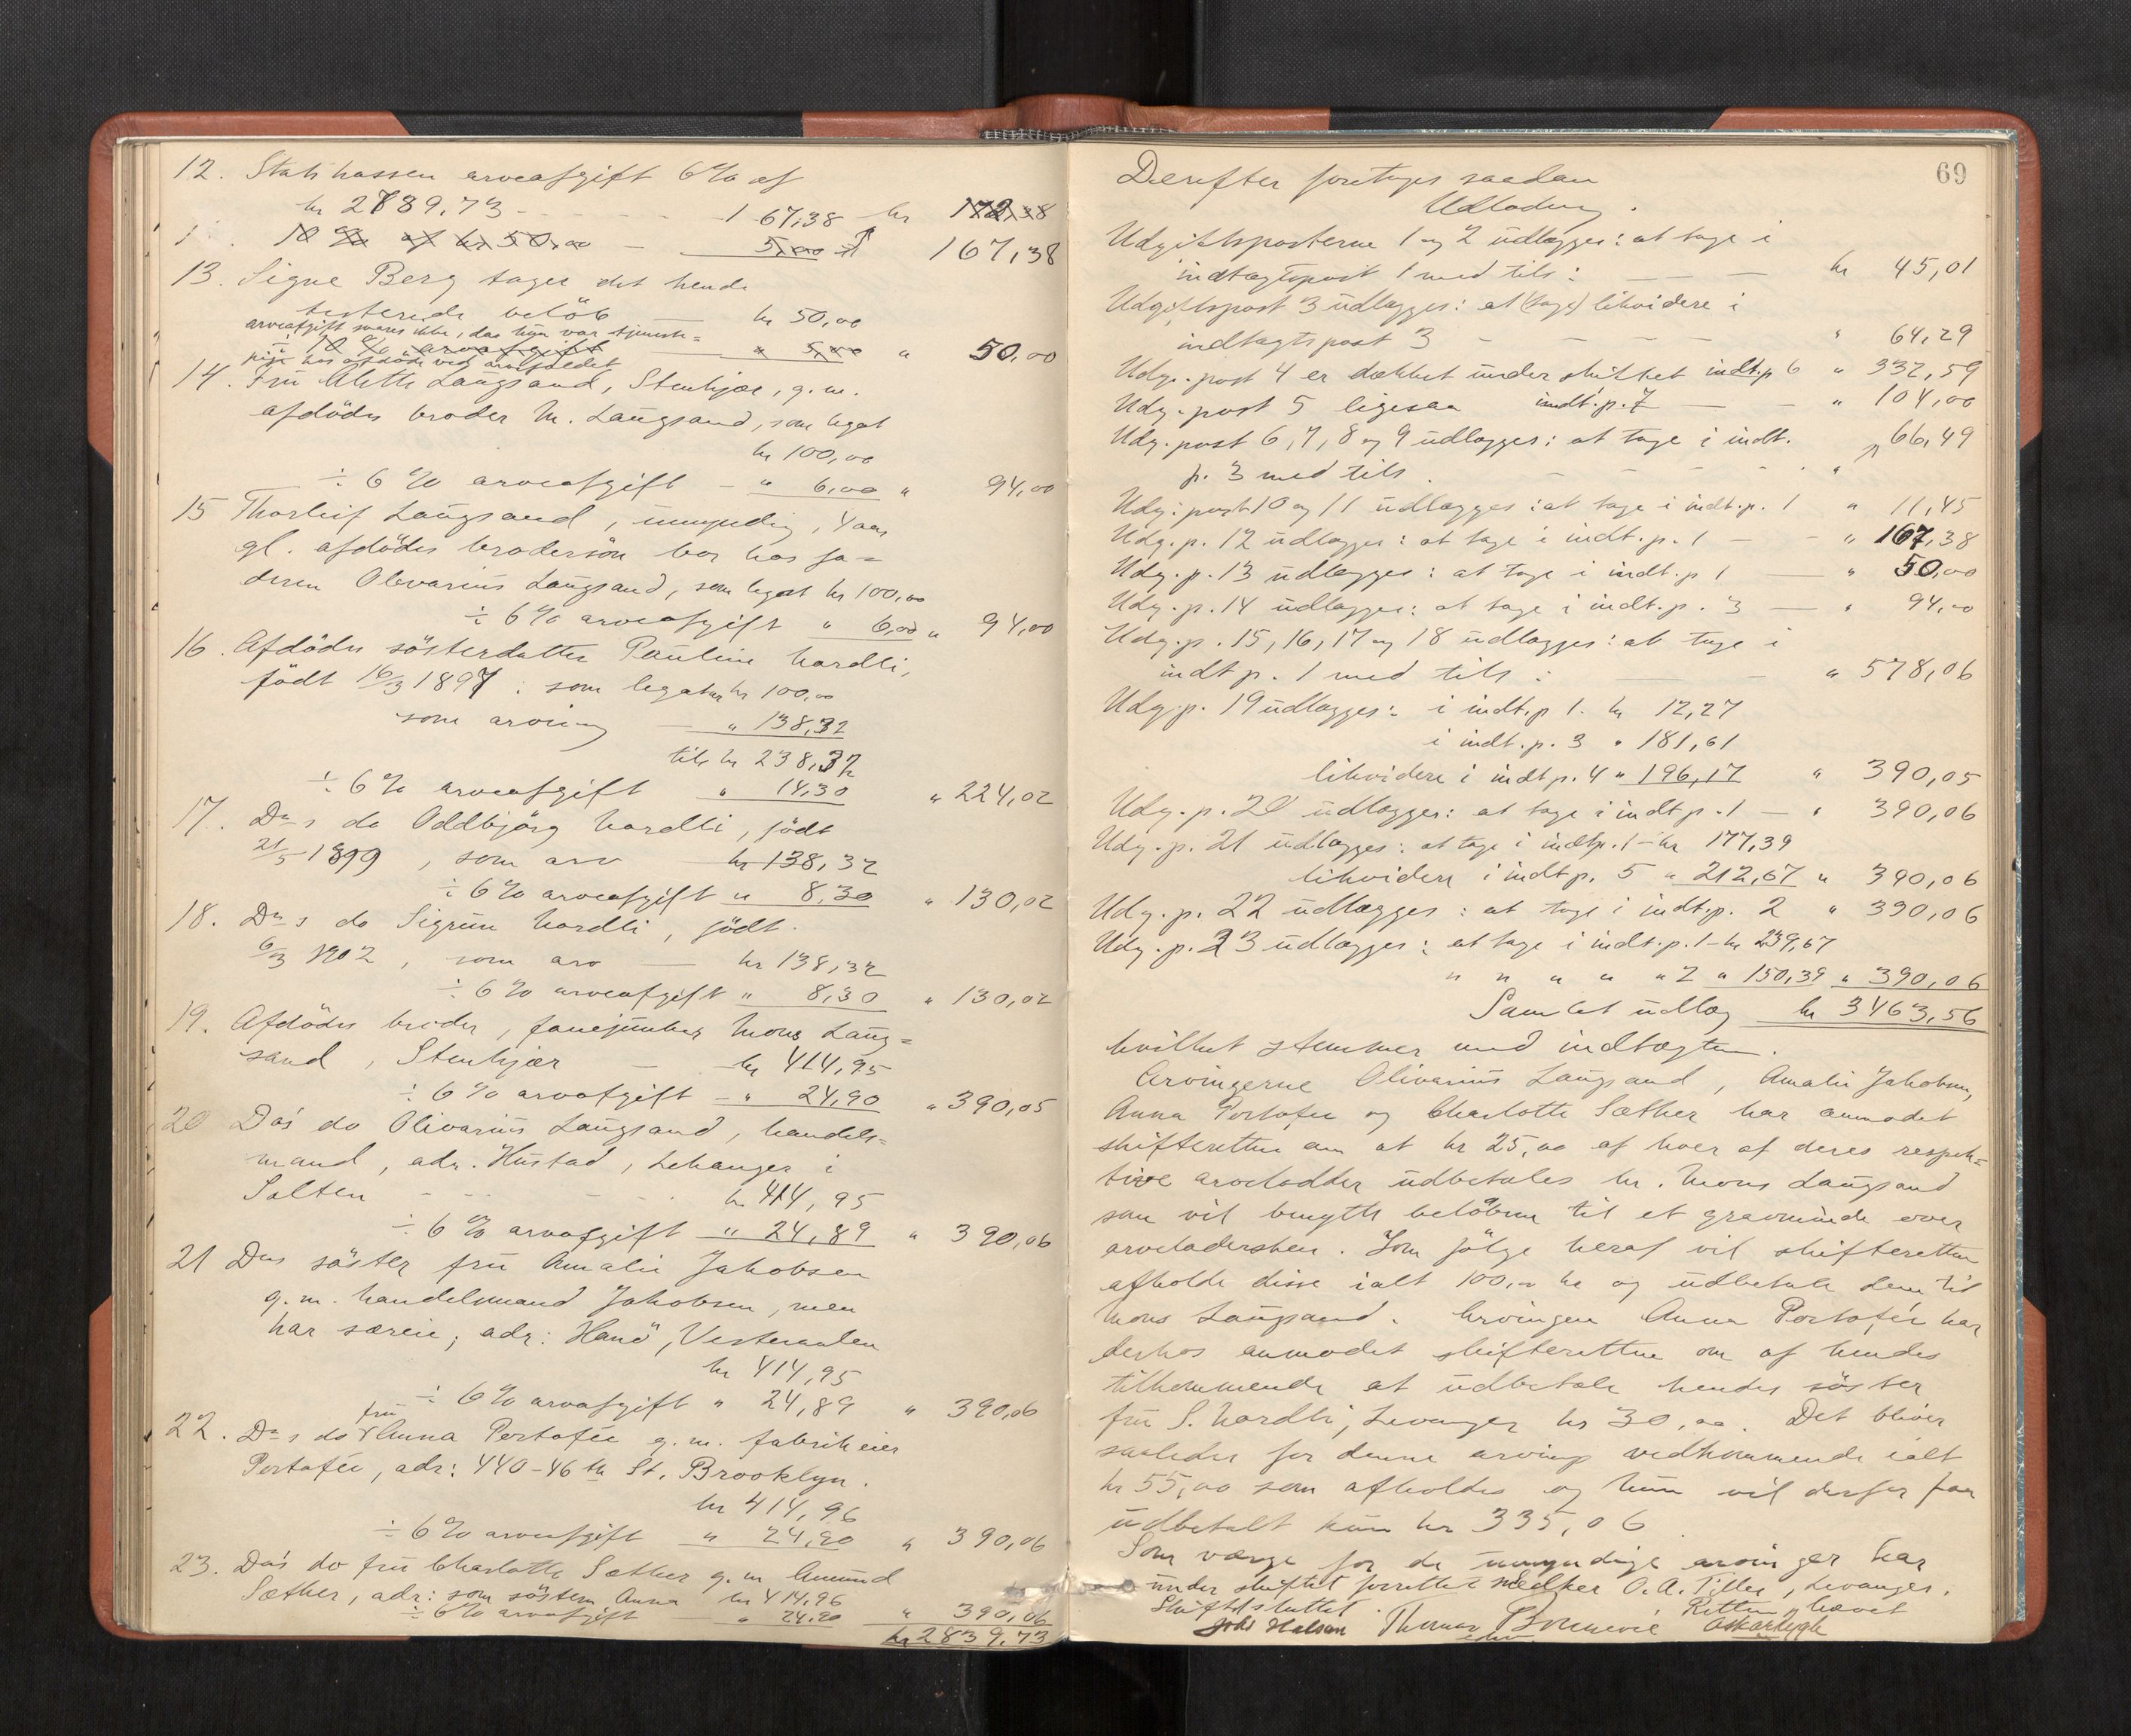 12. Statskassen arveafgift 6% af
kr 2789.73 - - - - - 167,38 kr 172,38
10 % af kr 50.00 — 5,00 167,38
13. Signe Berg tager det hende
testerede beløb — kr 50,00
arveafgift svares ikke, da hun var tjeneste=
÷ 10 % arveafgift — " 5,00 " 50,00
pige hos afdöde ved arvefaldet
14. Frü Alette Langsand, Stenkjær, g.m.
afdödes broder M. Langsand, som legat
kr 100,00
÷ 6% arveafgift - " 6,00 " 94,00
15 Thorleif Langsand, ümyndig, 4 aar
gl. afdödes brodersön bor hos fa=
deren Olivarius Langsand, som legat kr 100,00
÷ 6% arveafgift " 6,00 " 94,00
16. Afdödes sösterdatter Pauline Nordli,
födt 16/3 1897 : som legatar kr 100,00
som arving — " 138,32
tils kr 238,32
÷ 6% arveafgift " 14,30 " 224,02
17. Ds do Oddbjörg Nordli, födt
21/5 1899, som arv kr 138,32
÷ 6% arveafgift " 8,30 " 130,02
18. Ds do Sigrun Nordli, födt
6/3 1902, som arv — kr 138,32
÷ 6% arveafgift " 8,30 " 130,02
19. Afdödes broder, fanejunker Mons Lang=
sand, Stenkjær — kr 414,95
÷ 6% arveafgift - " 24,90 " 390,05
20 Ds do Olivariüs Langsand, handels=
mand, adr. Hüstad, i
Salten - - - kr 414,95
÷ 6% arveafgift " 24,89 " 390,06
21 Ds söster frü Amalie Jakobsen
g.m. handelsmand Jakobsen, men
har særeie; adr: Hanö, Vesteraalen
kr 414,95
÷ 6% arveafgift " 24,89 " 390,06
22. Ds do frü Anna Portafée g.m. fabrikeier
Portafée, adr: 440-46th St. Brooklyn.
kr 414,96
÷ 6% arveafgift " 24,90 " 390,06
23. Ds do frü Charlotte Sæther g.m. Amünd
Sæther, adr: som söstern Anna kr 414,96
÷ 6% arveafgift — " 24.90 " 390,06
kr 2839,73
69
Derefter foretages saadan
Udlodning.
Udgiftsposterne 1 og 2 üdlægges: at tage i
indtægtspost 1 med tils: — — kr 45,01
Udgiftspost 3 üdlægges: at (tage) likvidere i
indtægtspost 3 - - - - " 64,29
Udg. post 4 er dækket ünder skiftet indt.p 6 " 332,59
Udg. post 5 ligesaa indt.p.7 — - " 104,00
Udg. post 6, 7, 8 og 9 üdlægges: at tage i indt. 66,49
p. 3 med tils. - - - - - "
Udg. post 10 og 11 üdlægges: at tage i indt.p. 1 " 11,45
Udg. p. 12 üdlægges: at tage i indt.p. 1 — - " 167,38
Udg. p. 13 üdlægges: at tage i indt.p 1 — " 50,00
Udg. p. 14 üdlægges: at tage i indt.p. 3 — " 94,00
Udg. p. 15, 16, 17 og 18 üdlægges: at tage i
indt p. 1 med tils: — - " 578,06
Udg. p. 19 üdlægges: i indt.p 1. kr 12,27
i indt.p. 3 " 181,61
likvidere i indt p. 4 " 196,17 " 390,05
Udg. p. 20 üdlægges: at tage i indt p. 1 — " 390,06
Udg. p. 21 üdlægges: at tage i indtp. 1 - kr 177,39
likvidere i indt p. 5 " 212,67 " 390,06
Udg. p. 22 üdlægges: at tage i indt.p. 2 " 390,06
Udg. p. 23 üdlægges: at tage i indt.p. 1 - kr 239,67
" " " " " 2 " 150,39 " 390,06
Samlet üdlæg kr 3463,56
hvilket stemmer med indtægten.
Arvingerne Olivariüs Langsand, Amalie Jakobsen,
Anna Portafée og Charlotte Sæther har anmodet
skifteretten om at kr 25,00 af hver af deres respek=
tive arvelodder üdbetales hr. Mons Langsand
som vil benytte beløbene til et gravminde over
arveladersken. Som fölge heraf vil skifteretten
afholde disse ialt 100,00 kr og üdbetale dem til
Mons Langsand. Arvingen Anna Portafée har
derhos anmodet skifteretten om af hendes
tilkommende at üdbetale hendes söster
frü S. Nordli, Levanger kr 30,00. Det bliver
saaledes for denne arving vedkommende ialt
kr 55,00 som afholdes og hün vil derfor faa
üdbetalt kün kr 335,06.
Som værge for de ümyndige arvinger har
ünder skiftet forrettet O. A. Tiller, Levanger.
Skiftet slüttet. Retten hævet
Johs Halsan Thomas